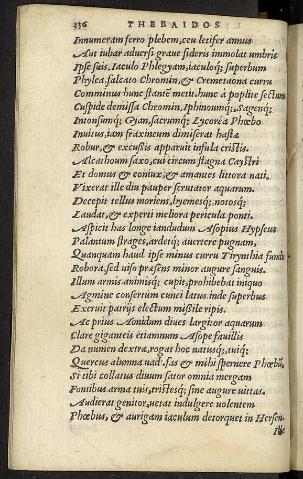 336 THEBAIDOS
Innumeram ferro plebem, ceu letifer annus
Aut iubar aduersi graue sideris immolat umbris
Ipse suis. Iaculo Phlegyam, iaculoq; superbum
Phylea, falcato Chromin, & Cremetaona curru
Comminus hunc stantē metit, hunc à poplite sectum
Cuspide demissa Chromin, Iphinoumq;, Sagenq;
Intonsumq; Gyan, sacrumq; Lycorea Phœbo
Inuitus, iam fraxineum dimiserat hastæ
Robur, & excussis apparuit infula cristis.
Alcathoum saxo, cui circum stagna Caystri
Et domus & coniux, & amantes littora nati.
Vixerat ille diu pauper scrutator aquarum.
Decepit tellus moriens, hyemesq;, notosq;
Laudat, & experti meliora pericula ponti.
Aspicit has longe iandudum Asopius Hypseus
Palantum strages, ardetq; auertere pugnam,
Quanquam haud ipse minus curru Tirynthia fundēs
Robora, sed uiso præsens minor augure sanguis.
Illum armis animisq; cupit, prohibebat iniquo
Agmine consertum cunei latus, inde superbus
Exeruit patrijs electum missile ripis.
Ac prius Aonidum diues largitor aquarum
Clare giganteis etiamnum Asope fauillis
Da numen dextræ, rogat hoc natusq;, tuiq;
Quercus alumna uadi. fas & mihi spernere Phœbū,
Si tibi collatus diuum sator omnia mergam
Fontibus arma tuis, tristesq; sine augure uittas.
Audierat genitor, uetat indulgere uolentem
Phœbus, & aurigam iaculum detorquet in Hersen